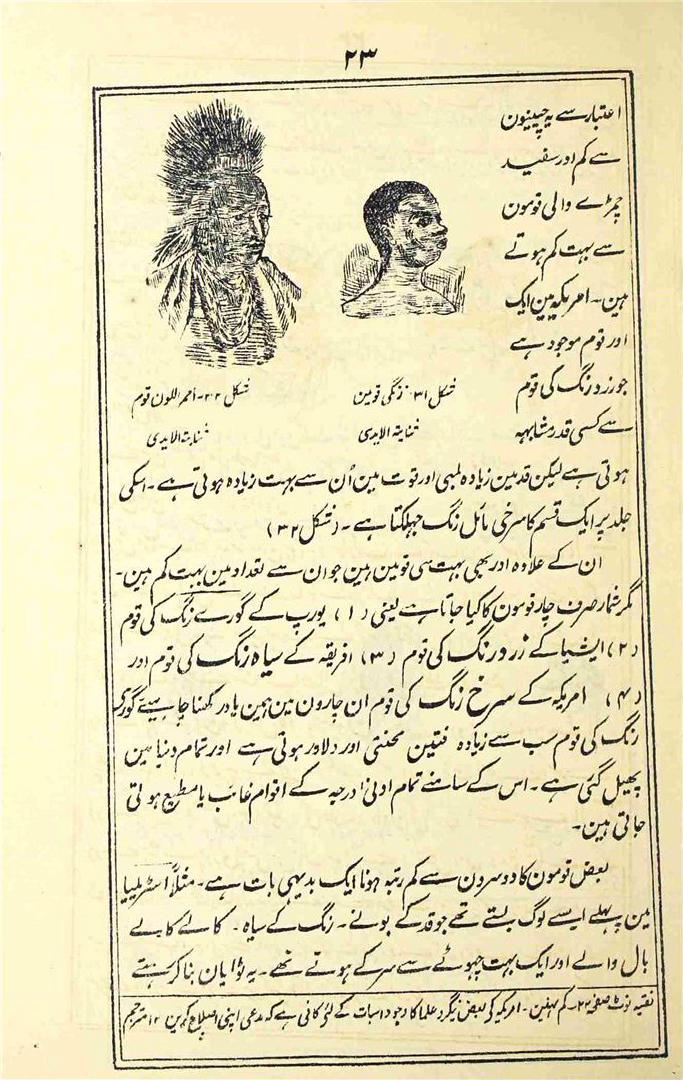 ۲۳
اعتبار سے یہ چینیون
سے کم اور سفید
چمڑے والی قومون
سے بہت کم ہوتے
ہین۔ امریکہ مین ایک
اور قوم موجود ہے
جو زرد رنگ کی قوم
سے کسی قدر مشابہہ
شکل ۳۱ زنگی قومین
ثنایتہ الایدی
شکل ۳۲۔ احمر اللون قوم
ثنایتہ الایدی
ہوتی ہے لیکن قد مین زیادہ لمبی اور قوت مین اُن سے بہت زیادہ ہوتی ہے۔ اسکی
جلد پر ایک قسم کا سرخی مائل رنگ جہلکتا ہے۔ (شکل ۳۲)
ان کے علاوہ اور بھی بہت سی قومین ہین جو ان سے تعداد مین بہت کم ہین۔
مگر شمار صرف چار قومون کا کیا جاتا ہے یعنی (۱) یورپ کے گورے رنگ کی قوم
(۲) ایشیا کے زرد رنگ کی قوم (۳) افریقہ کے سیاہ رنگ کی قوم اور
(۴) امریکہ کے سرخ رنگ کی قوم ان چارون مین ہمین یاد رکھنا چاہیئے گوری
رنگ کی قوم سب سے زیادہ فتین محنتی اور دلاور ہوتی ہے اور تمام دنیا مین
پھیل گئی ہے۔ اس کے سامنے تمام ادنیٰ درجہ کے اقوام غائب یا مطیع ہوتی
جاتی ہین۔
بعض قومون کا دوسرون سے کم رتبہ ہونا ایک بدیہی بات ہے۔ مثلاً آسٹریلیا
مین پہلے ایسے لوگ بستے تھے جو قد کے بونے۔ رنگ کے سیاہ۔ کالے کالے
بال والے اور ایک بہت چہوٹے سے سر کے ہوتے تھے۔ یہ ٹولیان بنا کر رہتے
بقیہ نوٹ صفحہ ۲۲۔ کم نہین۔ امریکہ کی بعض نیگرو علما کا وجود اسبات کے لئے کافی ہے کہ مدعی اپنی اصلاح کرین ۱۲ مترجم